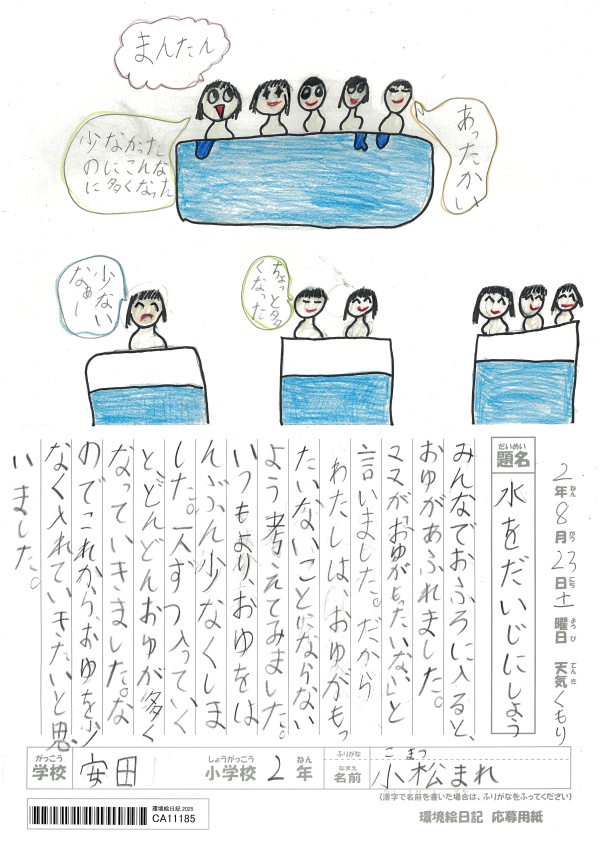 まんたん
少なかった
のにこんな
に多くなった
あったかい
少ない
なぁー
ちょっと多
くなった
2年8月23日土曜日 天気くもり
ねん がつ にち ようび てんき
だいめい
題名 水をだいじにしよう
みんなでおふろに入ると、
おゆがあふれました。
ママが「おゆがもったいない」と
言いました。だから
わたしは、おゆがもっ
たいないことにならない
よう考えてみました。
いつもより、おゆをは
んぶん少なくしま
した。一人ずつ入っていく
と、どんどんおゆが多く
なっていきました。な
のでこれから、おゆを少
なく入れていきたいと思
いました。
がっこう しょうがっこう ねん ふりがな こまつ
学校 安田 小学校 2年 なまえ 名前 小松まれ
(漢字で名前を書いた場合は、ふりがなをふってください)
環境絵日記 2025
CA11185
環境絵日記 応募用紙